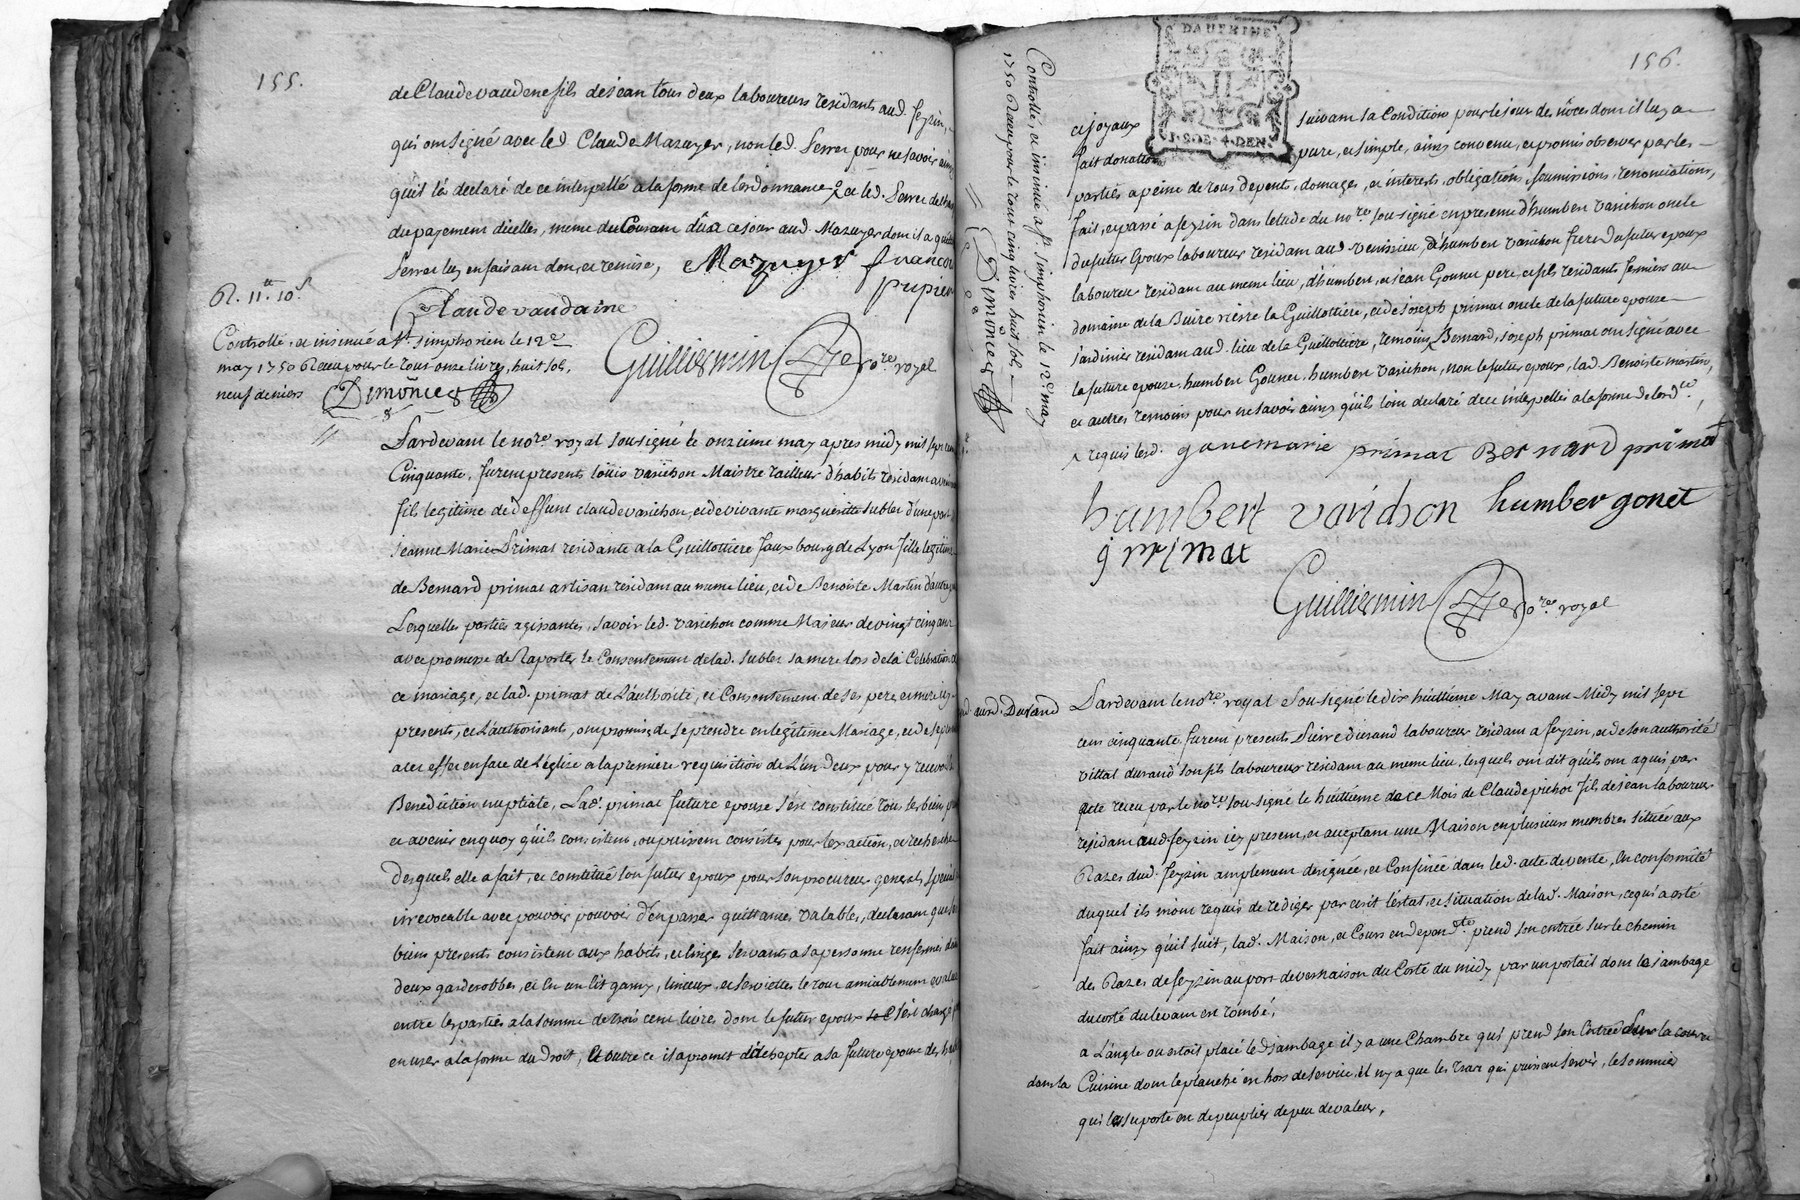 155.
de Claude vaudene fils de jean tous deux laboureurs residants aud. feyzin,
qui ont signé avec led Claude Mazuyer, non led. Serrer pour ne savoir ainsy
qu'il l'a declaré de ce interpellé a la forme de l'ordonnance, & led. Serrer
du payement d'icelles, meme du Courant dûs a ce jour aud. Mazuyer dont il a quitté
Serrer luy en faisant don, et remise,
Mazuyer françois
pupier
Claude vaudaine
R. 11.tt 10.s
Controllé, et insinué a St simphorien le 12e
may 1750 Receu pour le tout onze livres, huit sols,
neuf deniers Dimönces
Guilliermin no.re royal
Pardevant le no.re royal sousigné le onzieme may apres midy mil sept cent
Cinquante, furent presents loüis varichon Maistre tailleur d'habits residant a
fils legitime de deffunt claude varichon, et de vivante margueritte sublet d'une part
jeanne Marie Primat residante a la Guillottiere faux bourg de Lyon fille legitime
de Bernard primat artisan residant au meme lieu, et de Benoiste Martin d'autre
Lesquelles parties agissantes, savoir led. varichon comme Majeur de vingt cinq ans
avec promesse de Raporter le Consentement de lad. sublet sa mere lors de la Celebration
ce mariage, et lad. primat de L'authorité, et Consentement de ses pere et mere icy
presents, et L'authorisant, ont promis de se prendre en legitime Mariage, et de se presenter
a cet effet en face de L'église a la premiere requisition de L'un deux pour y recevoir
Benediction nuptiale, Lad. primat future epouse s'est constitué tous les biens
et avenir en quoy qu'ils consistent, ou puissent consister pour l'exaction, et recherche
desquels elle a fait, et constitué son futur epoux pour son procureur general special
irrevocable avec pouvoir pouvoir d'en passer quittances valables, declarant que ses
biens presents consistent aux habits, et linge servants a sa personne renfermés dans
deux garderobbes, et en un lit garny, linceux, et serviettes le tout amiablement evalué
entre les parties a la somme de trois cent livres dont le futur epoux s'est chargé
en user a la forme du Droit, et outre ce il a promet d'achepter a sa future epouse des
156.
DAUFINE
II
1.SOL.4.DEN.
Controllé, et insinué a St simphorien le 12e may
1750 Receu pour le tout cinq livres huit sols
Dimönces
et joyaux suivant sa Condition pour le jour de nôces dont il luy a
fait donation pure, et simple, ainsy convenu, et promis observer par les
parties a peine de tous depents, domages, et interets, obligations, soumissions, renonciations,
fait, et passé a feyzin dans l'etude du no.re sousigné en presence d'humbert varichon oncle
du futur Epoux laboureur residant aud venissieu, d'humbert varichon frere du futur epoux
laboureur residant au meme lieu, d'humbert, et jean Gonnet pere, et fils residants fermiers au
domaine de la Buire riere la Guillottiere, et de joseph primat oncle de la future epouse
jardinier residant aud. lieu de la Guillottiere, temoins, Bernard, joseph primat ont signé avec
la future epouse, humbert Gonnet, humbert varichon, non le futur epoux, lad. Benoiste martin,
et autres temoins pour ne savoir ainsy qu'ils l'ont declaré de ce interpellés a la forme de l'ord.ce
requis led. ganemarie primat Bernard primat
humbert varichon humber gonet
j primat
Guilliermin no.re royal
Durand
Pardevant le no.re royal sousigné le dix huittième May avant Midy mil sept
cent cinquante, furent presents Pierre durand laboureur residant a feyzin, et de son authorité
vittal durand son fils laboureur residant au meme lieu, lesquels ont dit qu'ils ont aquis par
acte receu par le no.re sousigné le huittième de ce Mois de Claude pichot fils de jean laboureur
residant aud feyzin icy present, et acceptant une Maison en plusieurs membres située aux
Razes dud. feyzin amplement designée, et Confinée dans led. acte de vente, en conformité
duquel ils m'ont requis de rediger par ecrit l'estat, et situation de lad. Maison, ce qui a eté
fait ainsy qu'il suit, lad. Maison, et Cours en depend.te prend son entrée sur le chemin
des Razes de feyzin au port de vernaison du Coté du midy par un portail dont le jambage
du coté du levant est tombé,
a L'angle ou estoit placé led jambage il y a une Chambre qui prend son Entrée sur la cour
dans la Cuisine dont le planché est hors de service, il n'y a que les trax qui puissent servir, le sommier
qui les suporte est de peuplier de peu de valeur,